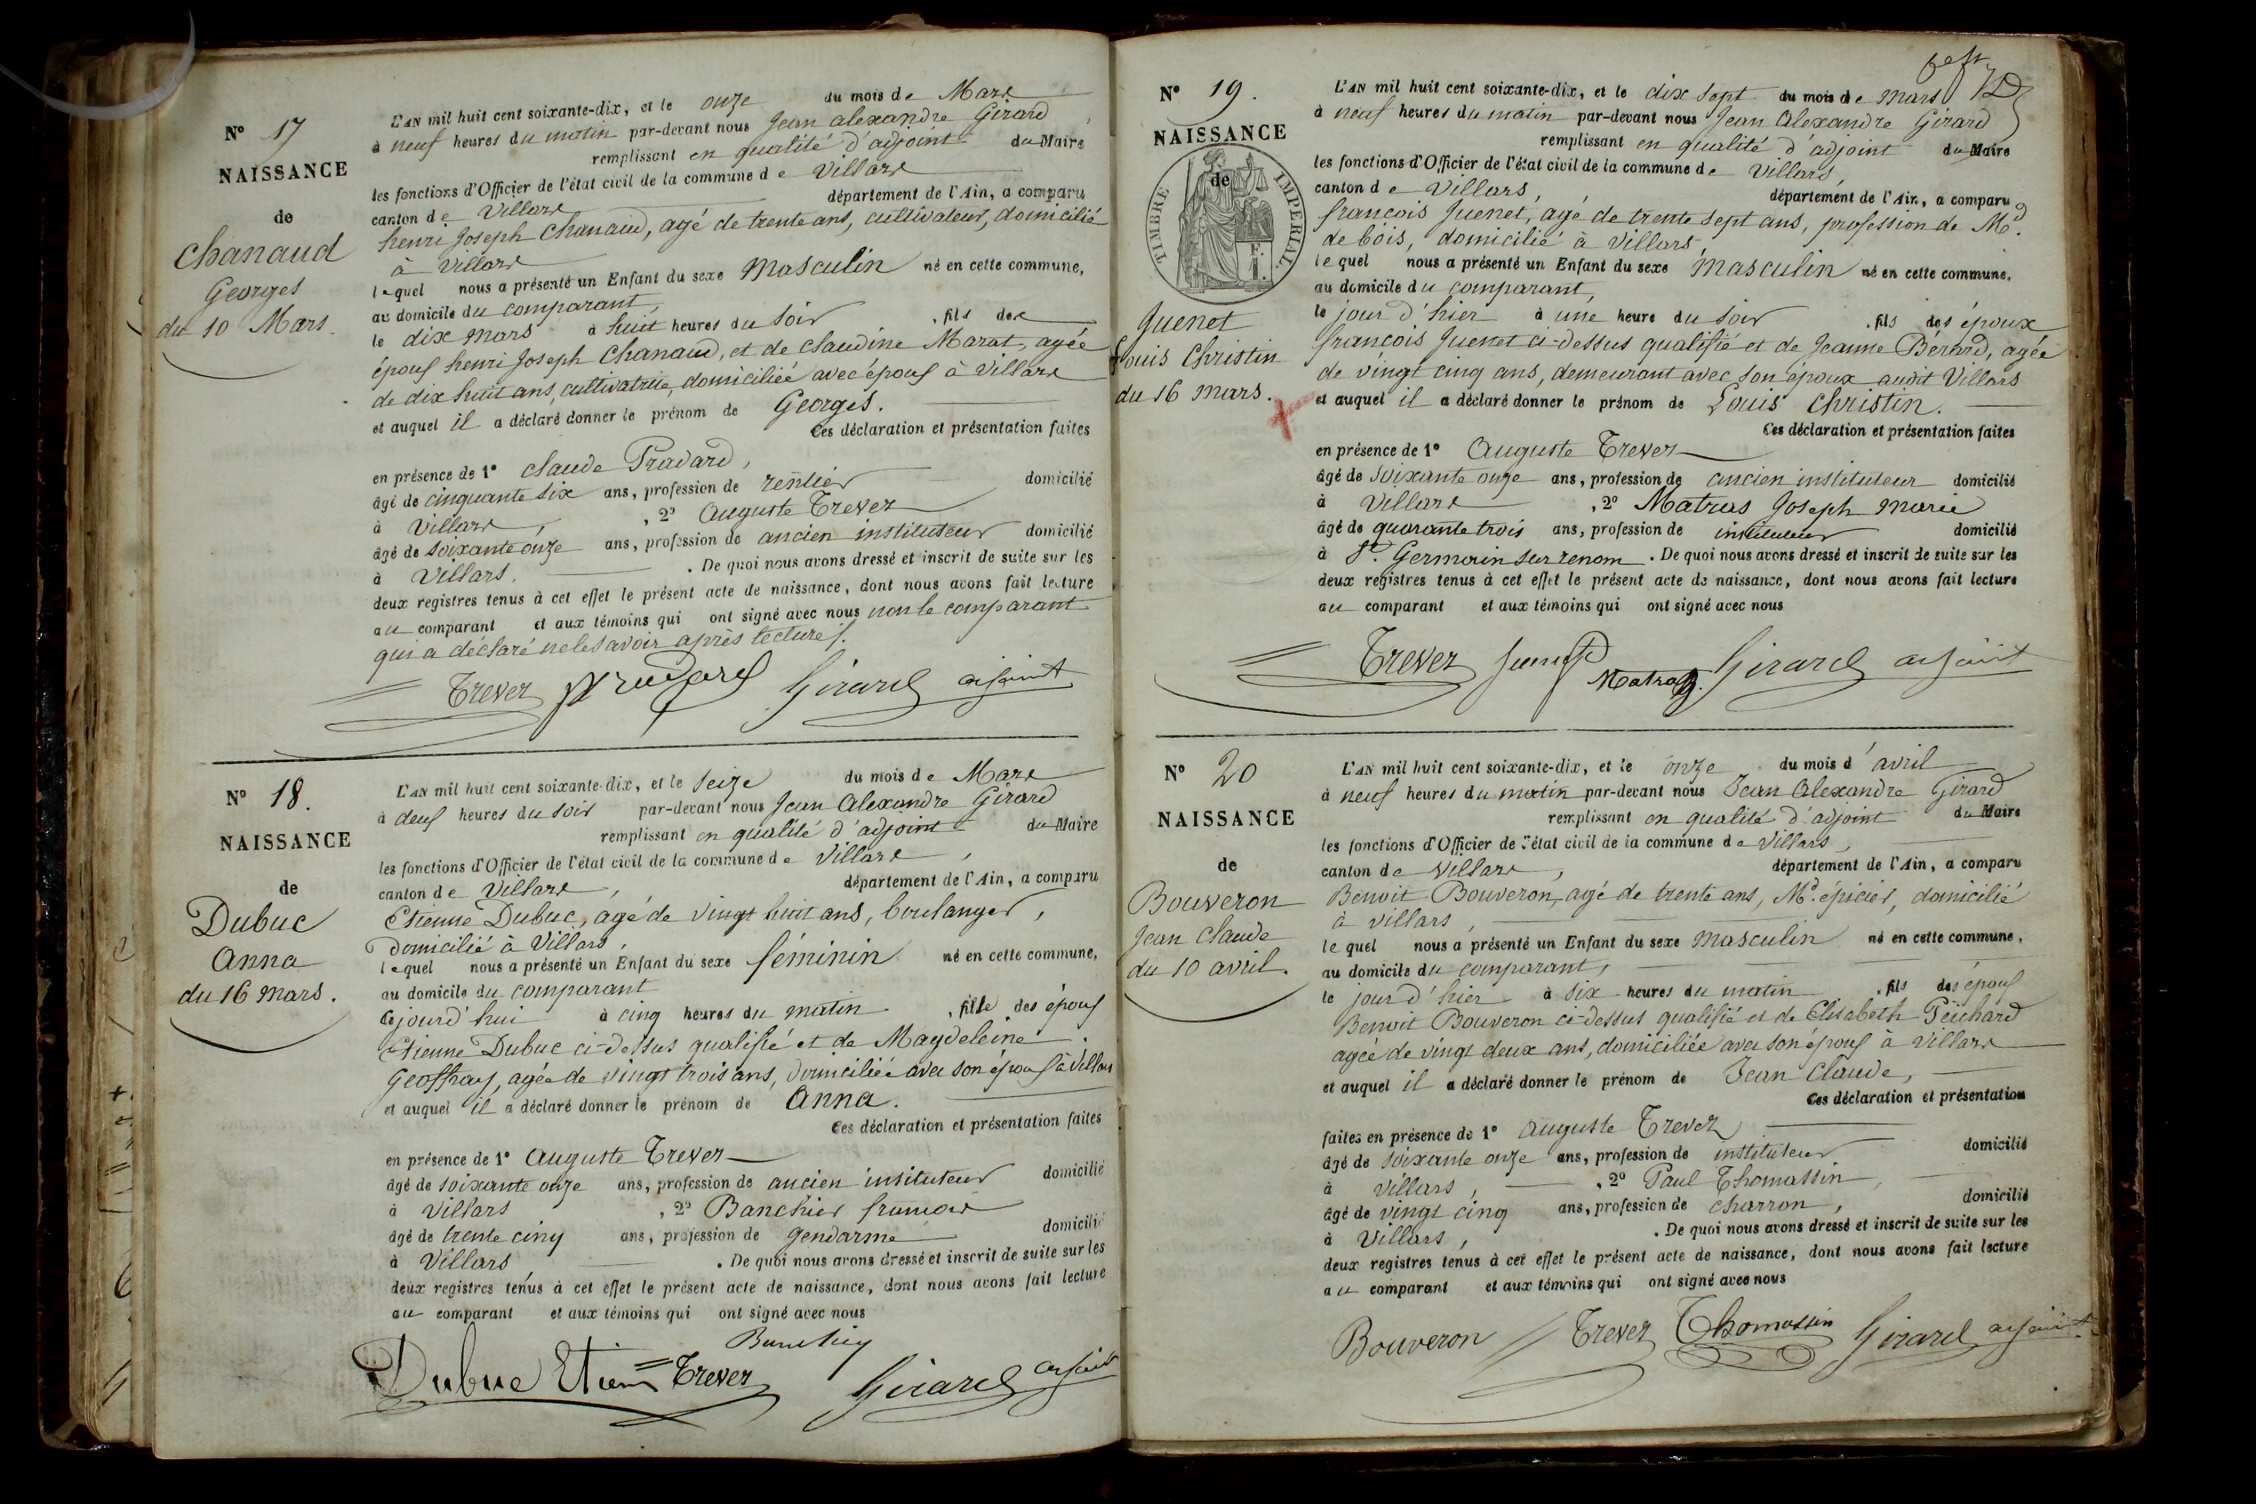 N° 17
NAISSANCE
de
Chanaud
Georges
du 10 Mars.
L'AN mil huit cent soixante-dix, et le onze du mois de Mars
à neuf heures du matin par-devant nous Jean alexandre Girard
remplissant en qualité d'adjoint du Maire
les fonctions d'Officier de l'état civil de la commune de Villars
canton de Villars département de l'Ain, a comparu
henri Joseph Chanaud, agé de trente ans, cultivateur, domicilié
à Villars
lequel nous a présenté un Enfant du sexe Masculin né en cette commune,
au domicile du comparant,
le dix mars à huit heures du soir, fils des
époux henri Joseph Chanaud, et de claudine Marat, agée
de dix huit ans, cultivatrice, domiciliée avec époux à Villars
et auquel il a déclaré donner le prénom de Georges.
Ces déclaration et présentation faites
en présence de 1° claude Pradard,
âgé de cinquante six ans, profession de rentier domicilié
à Villars, , 2° Auguste Trever
âgé de soixante onze ans, profession de ancien instituteur domicilié
à Villars. . De quoi nous avons dressé et inscrit de suite sur les
deux registres tenus à cet effet le présent acte de naissance, dont nous avons fait lecture
au comparant et aux témoins qui ont signé avec nous non le comparant
qui a déclaré ne le savoir après lecture.
Trever Pradard Girard adjoint
N° 18.
NAISSANCE
de
Dubuc
Anna
du 16 Mars.
L'AN mil huit cent soixante-dix, et le seize du mois de Mars
à deux heures du soir par-devant nous Jean Alexandre Girard
remplissant en qualité d'adjoint du Maire
les fonctions d'Officier de l'état civil de la commune de Villars,
canton de Villars, département de l'Ain, a comparu
Etienne Dubuc, âgé de vingt huit ans, boulanger,
domicilié à Villars,
lequel nous a présenté un Enfant du sexe féminin né en cette commune,
au domicile du comparant
cejourd'hui à cinq heures du matin, fille des époux
Etienne Dubuc ci-dessus qualifié et de Magdeleine
Geoffray, agée de vingt trois ans, domiciliée avec son époux à Villars
et auquel il a déclaré donner le prénom de Anna.
Ces déclaration et présentation faites
en présence de 1° Auguste Trever
âgé de soixante onze ans, profession de ancien instituteur domicilié
à Villars , 2° Banchier francois
âgé de trente cinq ans, profession de gendarme domicilié
à Villars . De quoi nous avons dressé et inscrit de suite sur les
deux registres tenus à cet effet le présent acte de naissance, dont nous avons fait lecture
au comparant et aux témoins qui ont signé avec nous
Dubuc Etienne Trever Girard adjoint
N° 19.
NAISSANCE
de
TIMBRE IMPERIAL
Juenet
Louis Christin
du 16 Mars.
L'AN mil huit cent soixante-dix, et le dix sept du mois de mars
à neuf heures du matin par-devant nous Jean Alexandre Girard
remplissant en qualité d'adjoint du Maire
les fonctions d'Officier de l'état civil de la commune de Villars,
canton de Villars, département de l'Ain, a comparu
francois Juenet, âgé de trente sept ans, profession de Md.
de bois, domicilié à Villars,
lequel nous a présenté un Enfant du sexe Masculin né en cette commune,
au domicile du comparant,
le jour d'hier à une heure du soir , fils des époux
francois Juenet ci-dessus qualifié et de Jeanne Bérard, agée
de vingt cinq ans, demeurant avec son époux audit Villars
et auquel il a déclaré donner le prénom de Louis Christin.
Ces déclaration et présentation faites
en présence de 1° Auguste Trever
âgé de soixante onze ans, profession de ancien instituteur domicilié
à Villars , 2° Matras Joseph Marie
âgé de quarante trois ans, profession de instituteur domicilié
à St. Germain sur renom . De quoi nous avons dressé et inscrit de suite sur les
deux registres tenus à cet effet le présent acte de naissance, dont nous avons fait lecture
au comparant et aux témoins qui ont signé avec nous
Trever Matras Girard adjoint
N° 20
NAISSANCE
de
Bouveron
Jean Claude
du 10 avril.
L'AN mil huit cent soixante-dix, et le onze du mois d'avril
à neuf heures du matin par-devant nous Jean Alexandre Girard
remplissant en qualité d'adjoint du Maire
les fonctions d'Officier de l'état civil de la commune de Villars,
canton de Villars, département de l'Ain, a comparu
Benoit Bouveron, agé de trente ans, Md. épicier, domicilié
à Villars,
lequel nous a présenté un Enfant du sexe masculin né en cette commune,
au domicile du comparant,
le jour d'hier à six heures du matin , fils des époux
Benoit Bouveron ci-dessus qualifié et de Elisabeth Peuchard
agée de vingt deux ans, domiciliée avec son époux à Villars
et auquel il a déclaré donner le prénom de Jean Claude,
Ces déclaration et présentation
faites en présence de 1° Auguste Trever
âgé de soixante onze ans, profession de instituteur domicilié
à Villars, , 2° Paul Thomassin,
âgé de vingt cinq ans, profession de charron, domicilié
à Villars, . De quoi nous avons dressé et inscrit de suite sur les
deux registres tenus à cet effet le présent acte de naissance, dont nous avons fait lecture
au comparant et aux témoins qui ont signé avec nous
Bouveron Trever Thomassin Girard adjoint